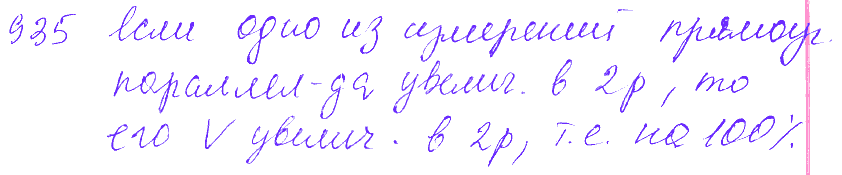 935 Если одно из измерений прямоуг.
параллел-да увелич. в 2р, то
его V увелич. в 2р, т.е. на 100%